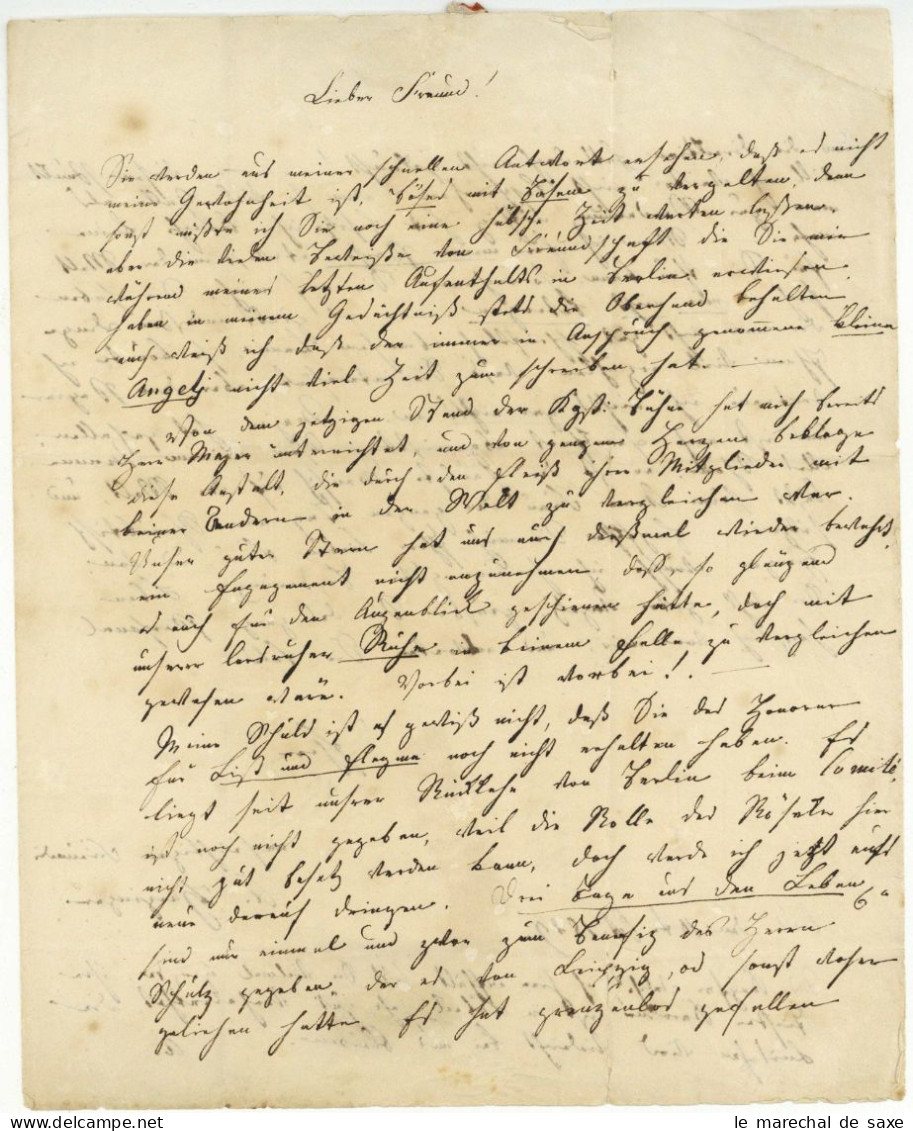 Lieber Freund!
Sie werden aus meiner schnellen Antwort ersehen, daß es nicht
meine Gewohnheit ist, Böses mit Bösem zu vergelten, denn
sonst müßte ich Sie noch eine hübsche Zeit warten lassen,
aber die vielen Beweise von Freundschaft die Sie mir
während meines letzten Aufenthalts in Berlin erwiesen
haben, in meinem Gedächtniß stets die Oberhand behalten
auch weiß ich daß der immer in Anspruch genommene kleine
Angely nicht viel Zeit zum schreiben hat. —
Von dem jetzigen Stand der Kgst. Bühne hat mich bereits
Herr Majer unterrichtet, und von ganzem Herzen beklage
diese Anstalt, die durch den Fleiß ihrer Mitglieder mit
keiner Andern in der Welt zu vergleichen war.
Unser guter Stern hat uns auch dießmal wieder bewahrt
ein Engagement nicht anzunehmen daß, so glänzend
es auch für den Augenblick geschienen hätte, doch mit
unserer Ruhe in keinem Falle zu vergleichen
gewesen wäre. Vorbei ist vorbei! —
Meine Schuld ist es gewiß nicht, daß Sie das Honorar
für List und Flegma noch nicht erhalten haben. Es
liegt seit unsrer Rückkehr von Berlin beim Comité,
ist noch nicht gegeben, weil die Rolle des hier
nicht gut besetzt werden kann, doch werde ich jetzt aufs
neue darauf dringen. Drei Tage aus dem Leben
sind nur einmal und zwar zum Benefiz des Herrn
Schütz gegeben, der es von Leipzig, od sonst woher
geliehen hatte. Es hat grenzenlos gefallen
le marechal de saxe